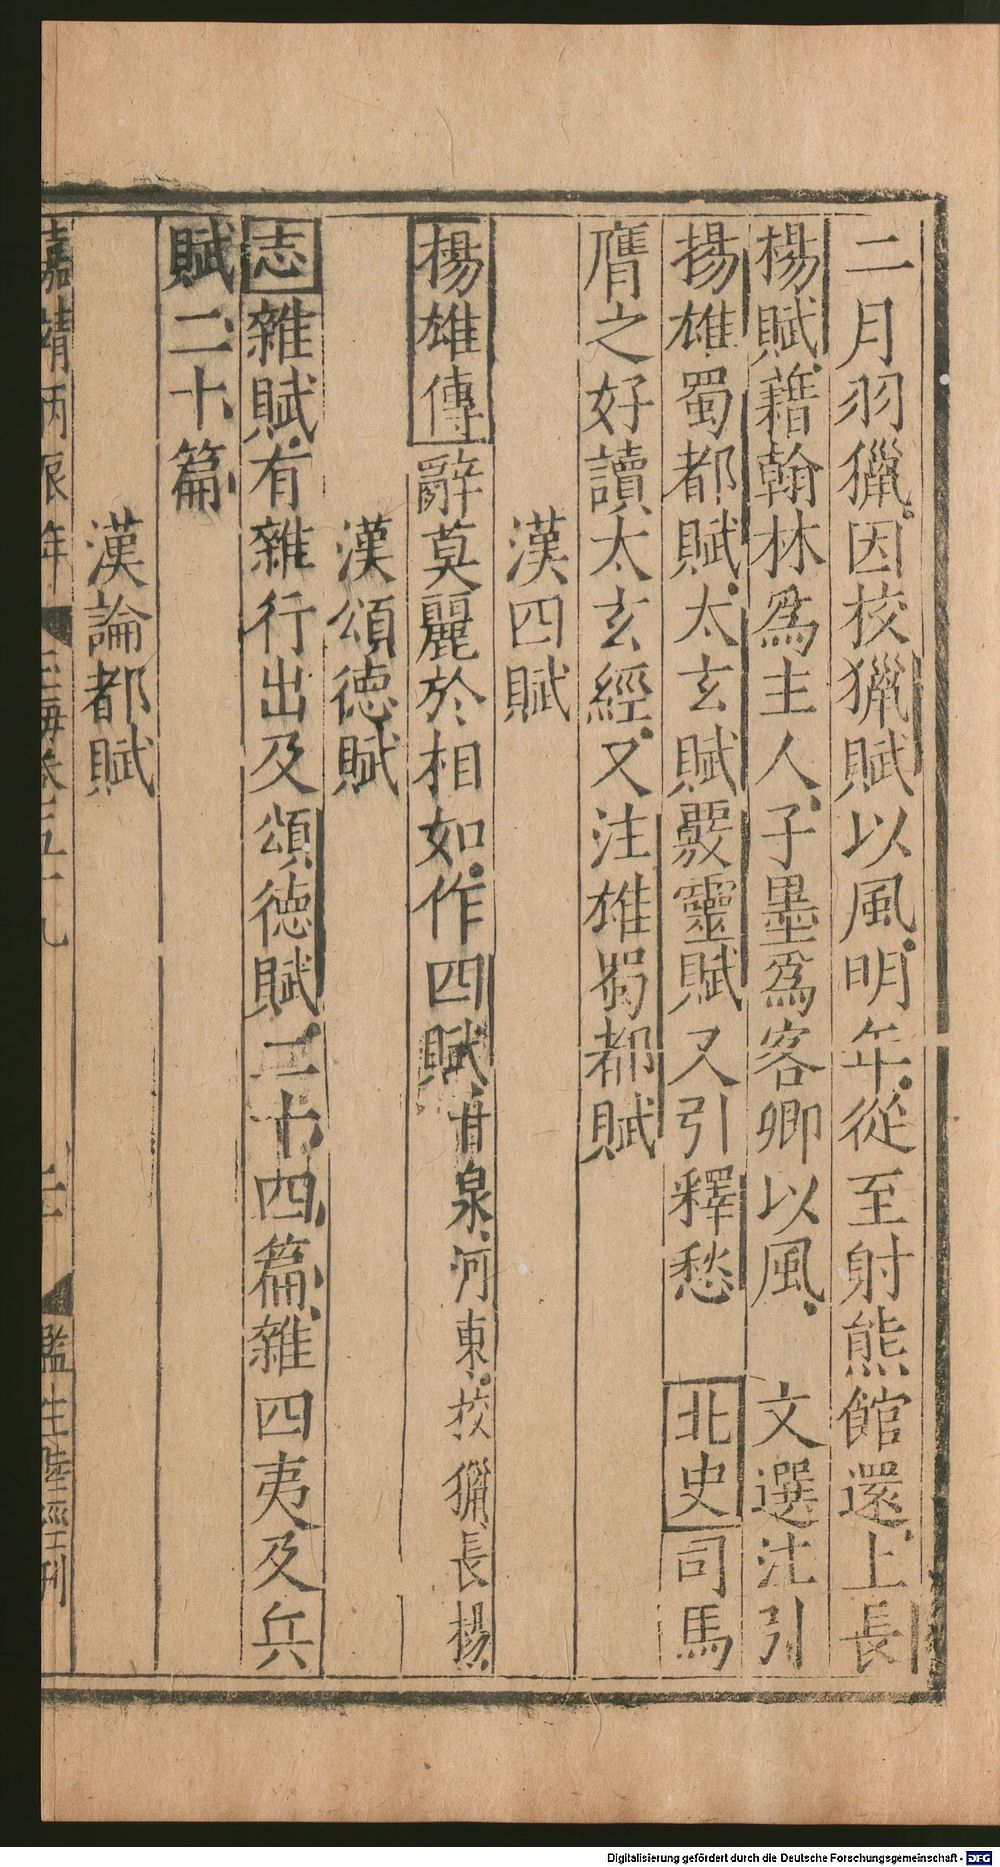 二月羽獵因校獵賦以風明年從至射熊館還上長
楊賦藉翰林爲主人子墨爲客卿以風 文選注引
揚雄蜀都賦太玄賦覈靈賦又引釋愁 北史司馬
膺之好讀太玄經又注雄蜀都賦
漢四賦
揚雄傳辭莫麗於相如作四賦甘泉河東校獵長楊
漢頌德賦
志雜賦有雜行出及頌德賦二十四篇雜四夷及兵
賦二十篇
漢論都賦
嘉靖丙辰年 玉海卷五十九 二 監生陸經刊
Digitalisierung gefördert durch die Deutsche Forschungsgemeinschaft - DFG